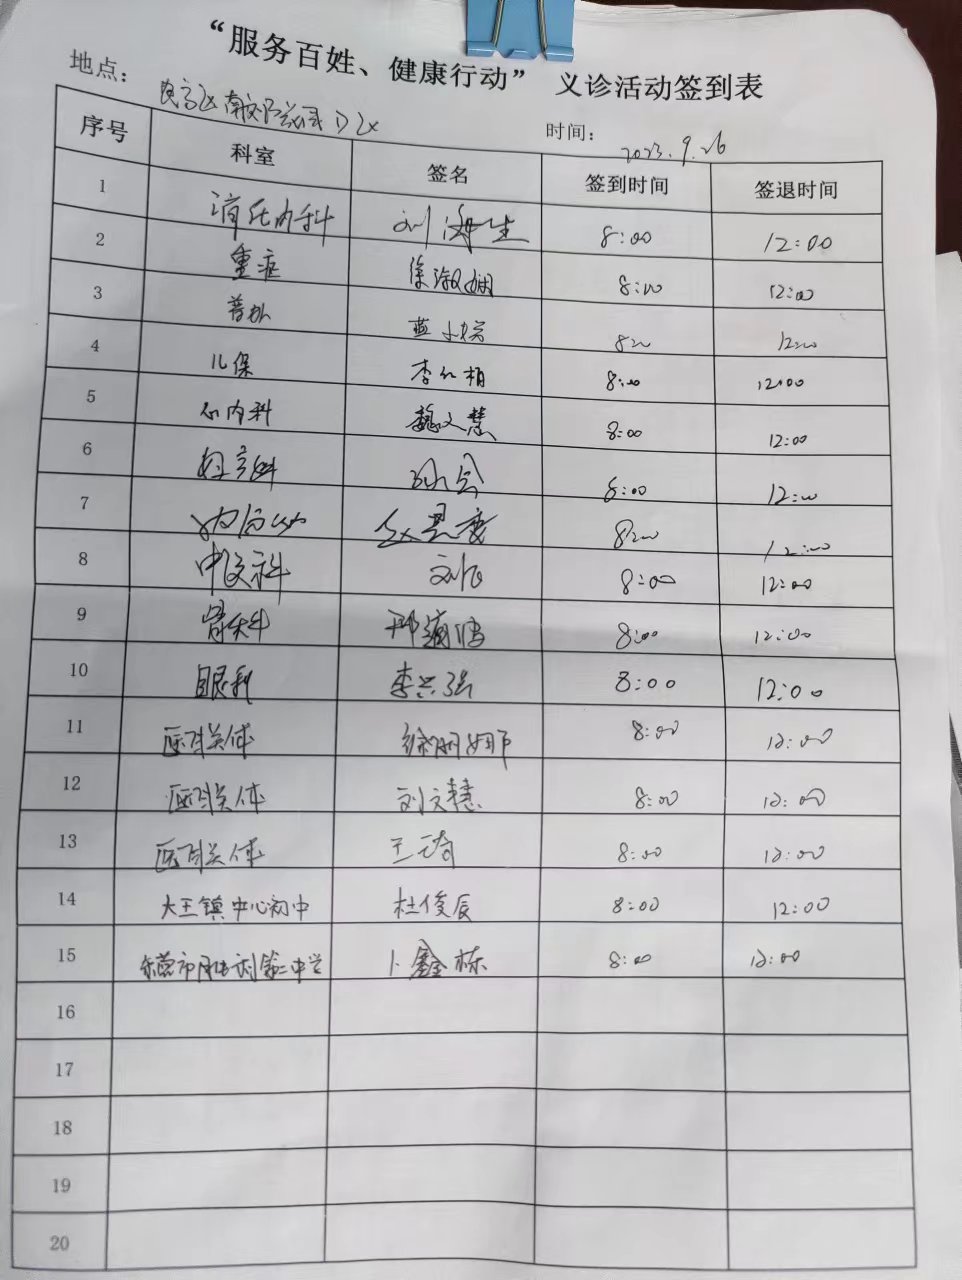 “服务百姓、健康行动” 义诊活动签到表
地点：
时间： 2023.9.26
序号 科室 签名 签到时间 签退时间
1 消化内科 刘海生 8:00 12:00
2 重症 徐淑娴 8:00 12:00
3 普外 蓝 8:00 12:00
4 儿保 李红梅 8:00 12:00
5 心内科 魏文慧 8:00 12:00
6 妇产科 8:00 12:00
7 8:00 12:00
8 8:00 12:00
9 骨关科 邢 8:00 12:00
10 眼科 李兴强 8:00 12:00
11 医联体 徐丽娜 8:00 12:00
12 医联体 刘文慧 8:00 12:00
13 医联体 王琦 8:00 12:00
14 大王镇中心初中 杜俊辰 8:00 12:00
15 东营市胜利第二中学 卜鑫栋 8:00 12:00
16
17
18
19
20